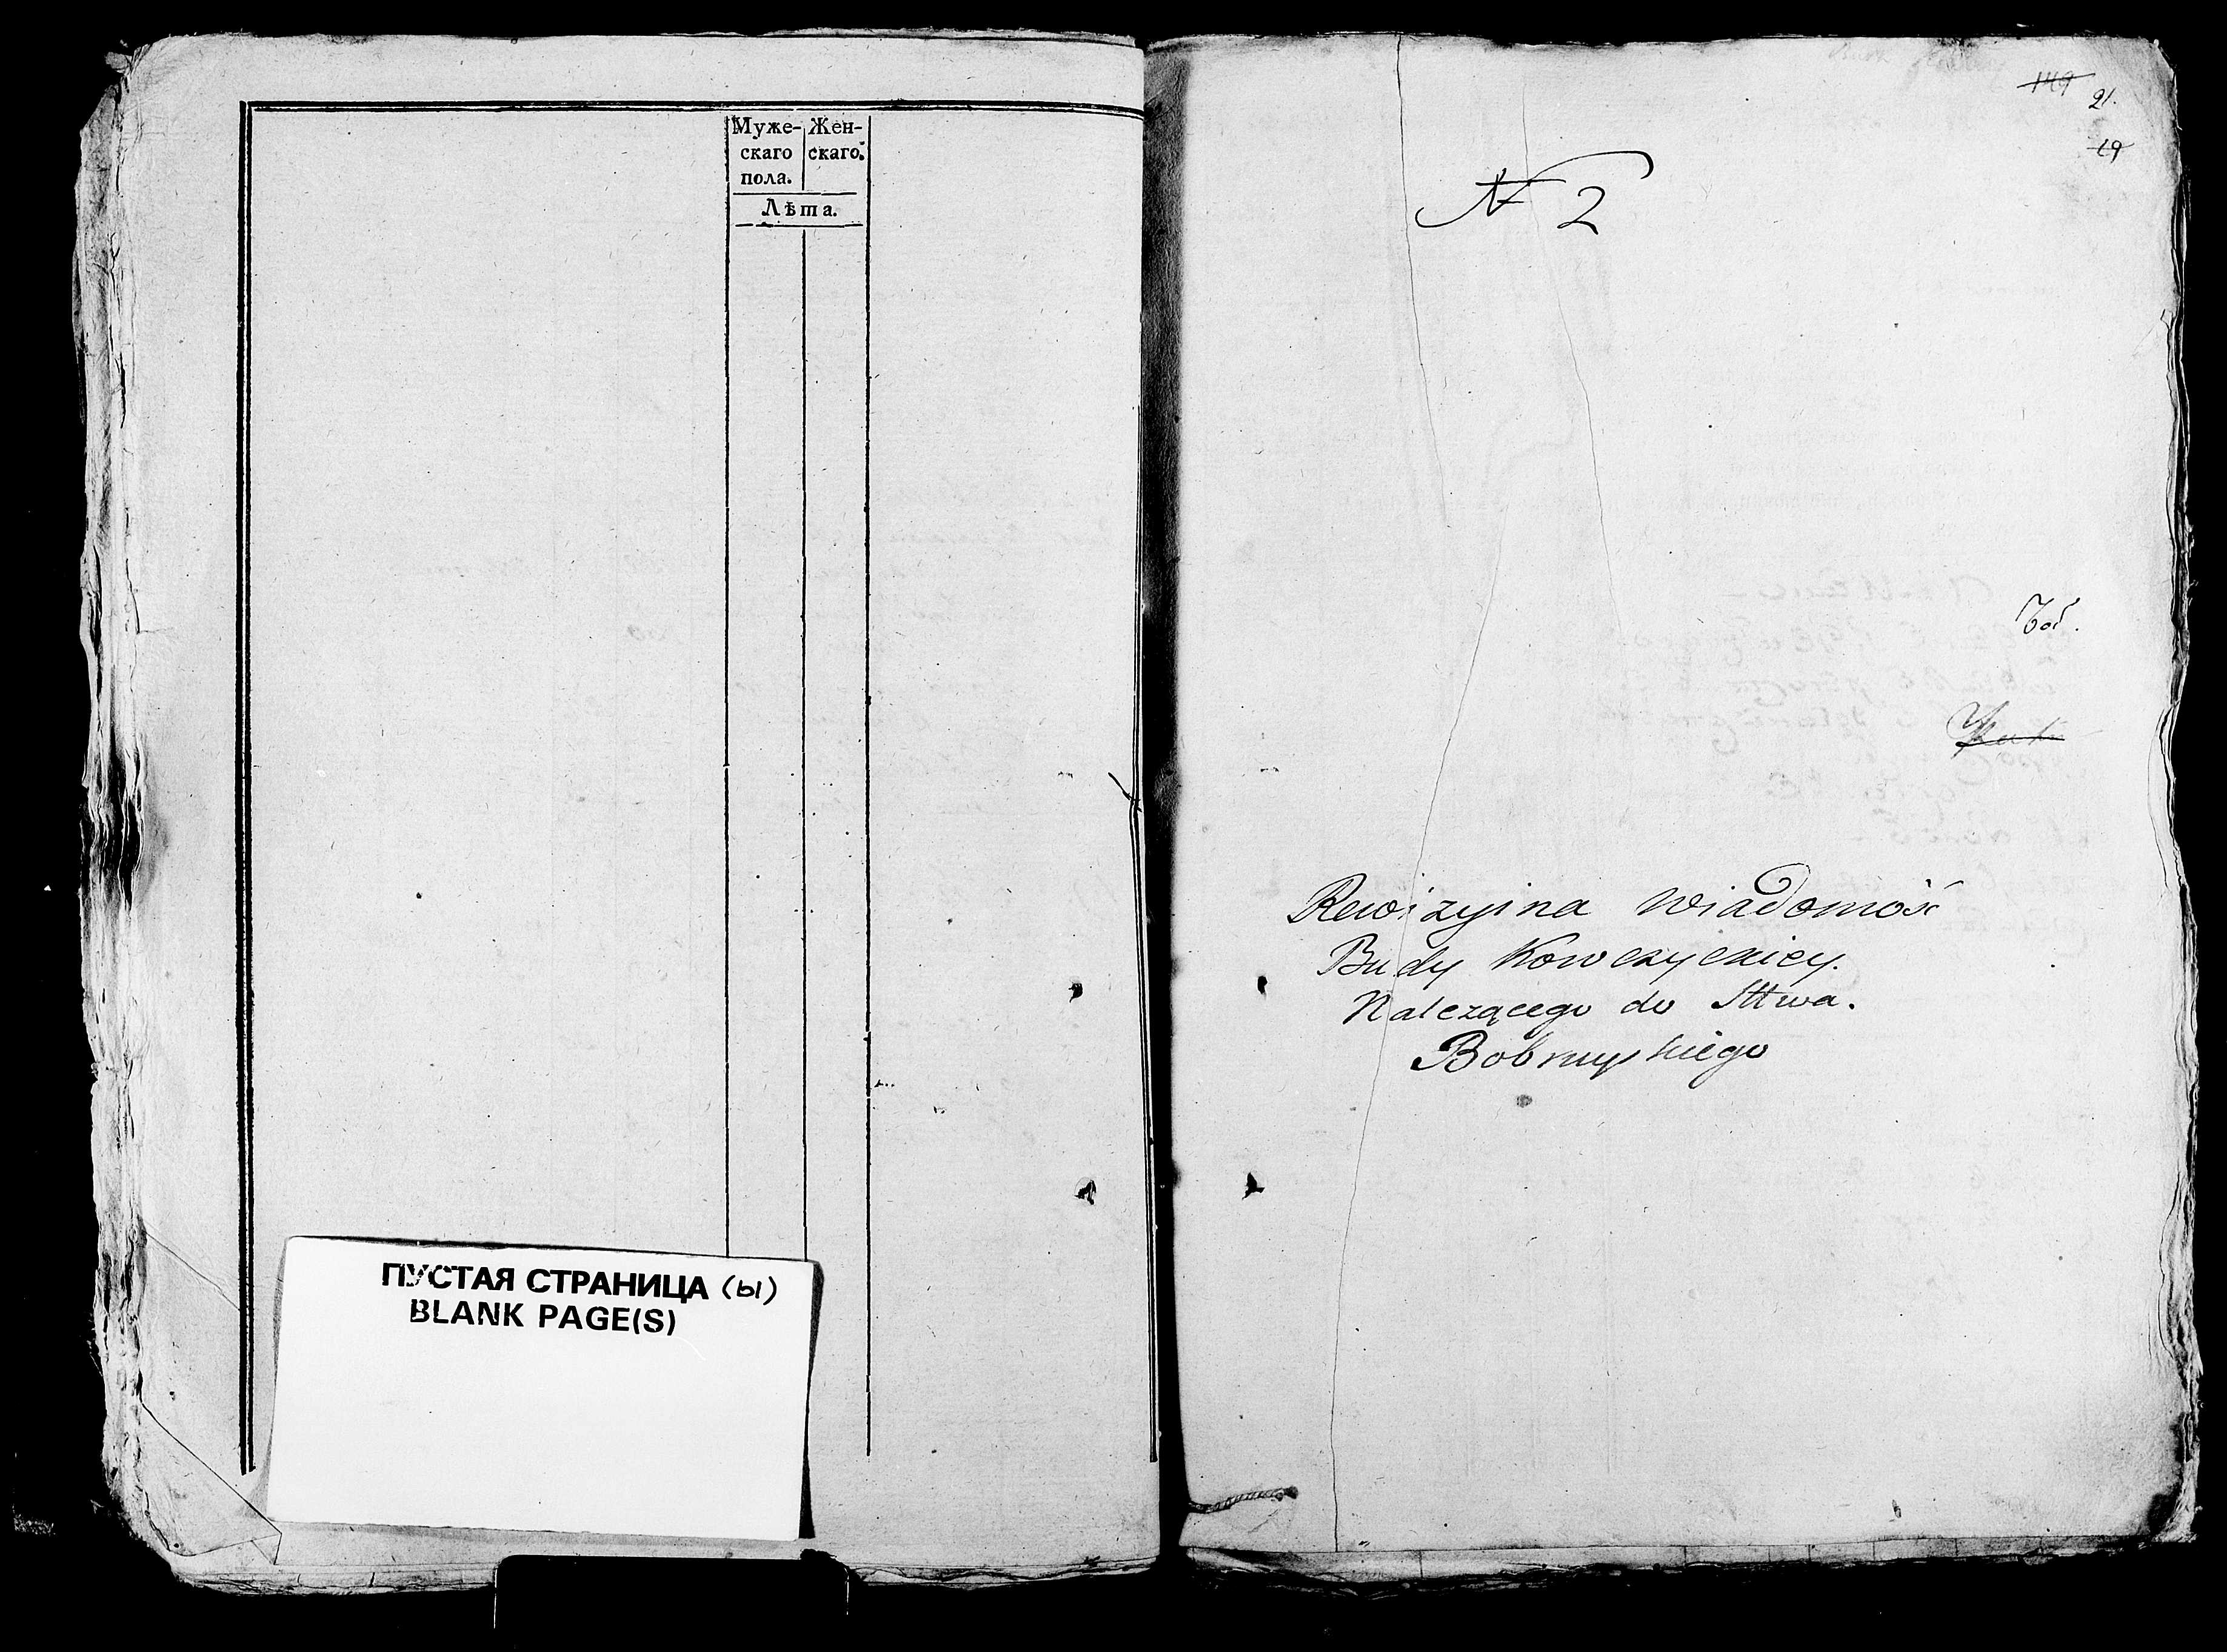 Муже-
скаго
пола.
Жен-
скаго.
Лѣта.
ПУСТАЯ СТРАНИЦА (ы)
BLANK PAGE(S)
149
21.
19
N 2
Rewizyina Wiadomość
Budy Kowczyckiey.
Należącego do Sttwa.
Bobruyskiego